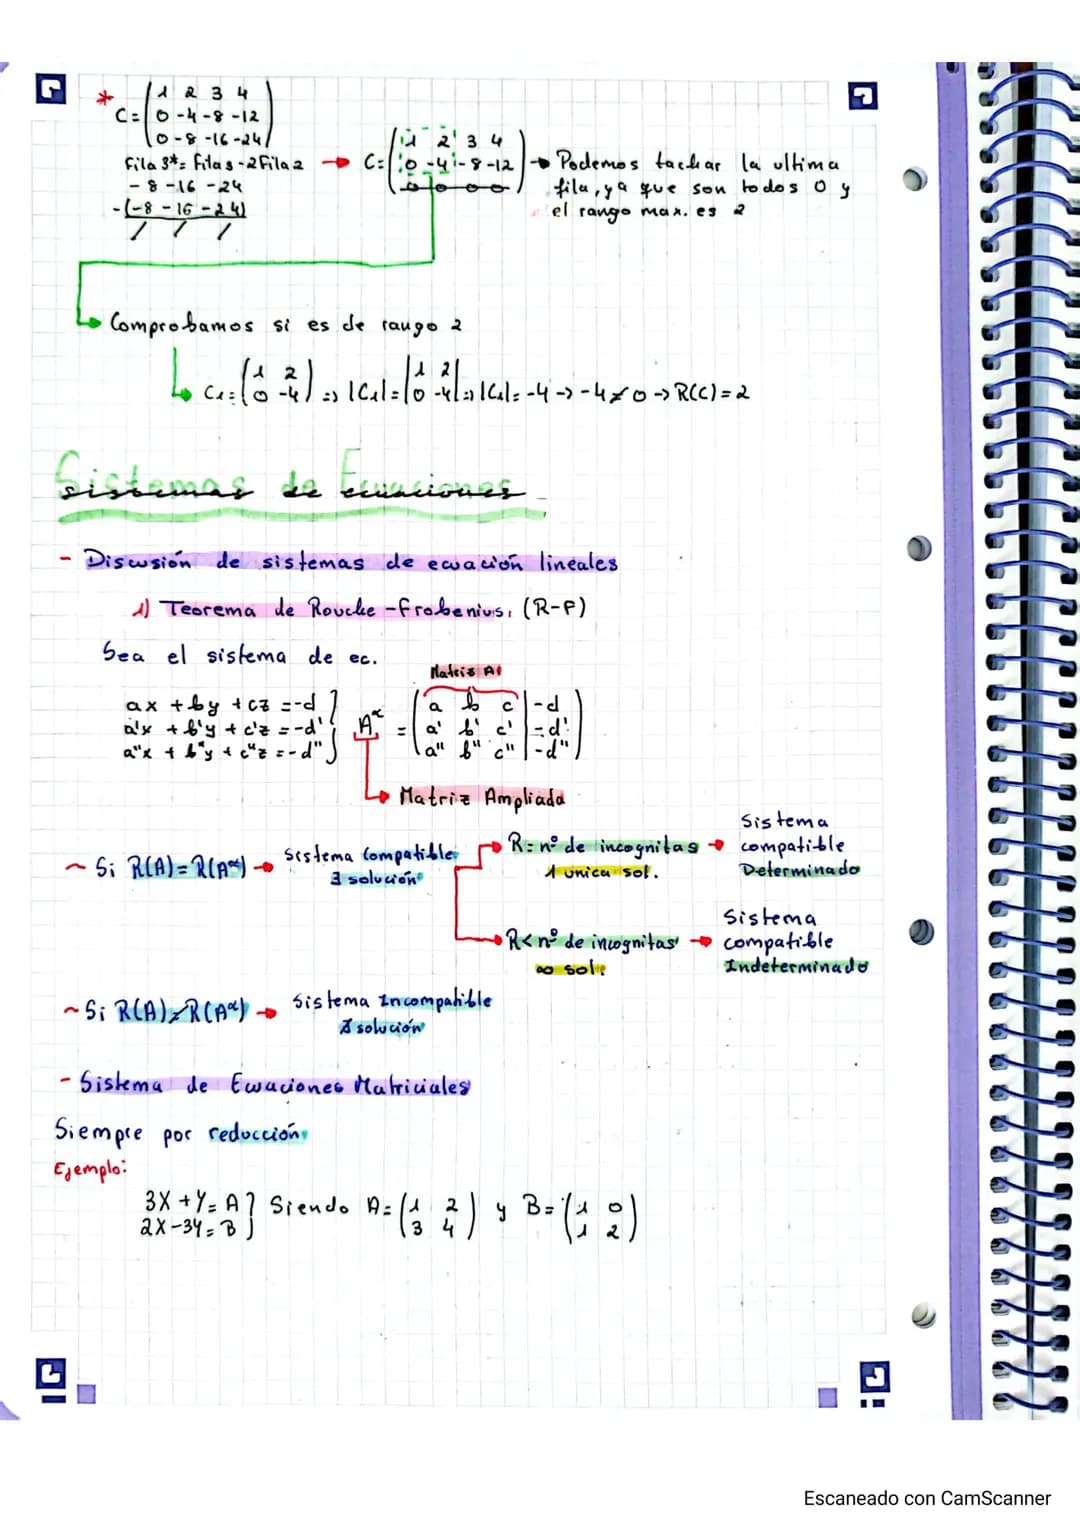 * C= ( 1 2 3 4
0 -4 -8 -12
0 -8 -16 -24 )
Fila 3*= Fila 3 -2 Fila 2 → C= ( 1 2 3 4
0 -4 -8 -12
0 0 0 0 ) → Podemos tachar la ultima
fila, ya que son todos 0 y
el rango max. es 2
- 8 -16 -24
-(-8 -16 -24)
/ / /
Comprobamos si es de rango 2
C₁= ( 1 2
0 -4 ) => |C₁|= | 1 2
0 -4 | => |C₁|= -4 -> -4 ≠ 0 -> R(C) = 2
Sistemas de Ecuaciones
- Discusión de sistemas de ecuación lineales
1) Teorema de Rouche - Frobenius. (R-F)
Sea el sistema de ec.
Matriz A
ax + by + cz = -d
a'x + b'y + c'z = -d'
a"x + b"y + c"z = -d" } A* = ( a b c | -d
a' b' c' | -d'
a" b" c" | -d" )
Matriz Ampliada
~ Si R(A) = R(A*) → Sistema Compatible
∃ solución
R = nº de incognitas → Sistema
compatible
Determinado
1 unica sol.
R < nº de incognitas → Sistema
compatible
Indeterminado
∞ sol.
~ Si R(A) ≠ R(A*) → Sistema Incompatible
∄ solución
- Sistema de Ecuaciones Matriciales
Siempre por reducción
Ejemplo:
3X + Y = A
2X - 3Y = B } Siendo A = ( 1 2
3 4 ) y B = ( 1 0
1 2 )
Escaneado con CamScanner